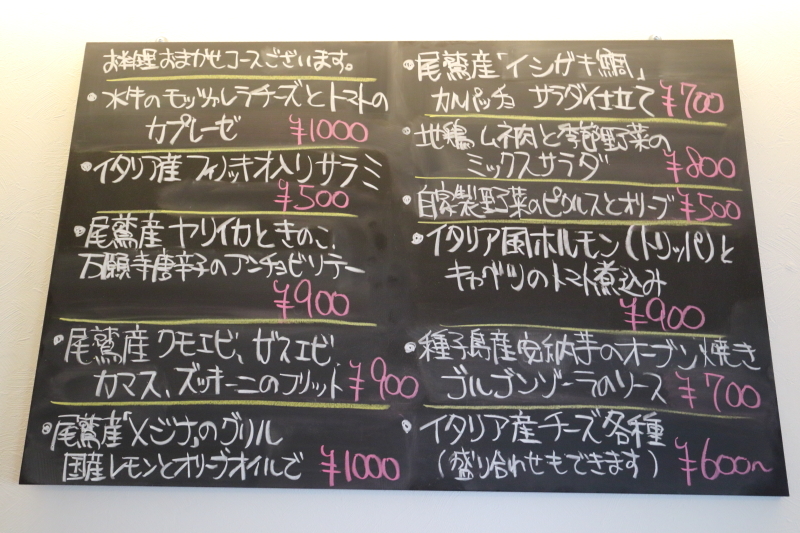 お料理おまかせコースございます。
・水牛のモッツァレラチーズとトマトの
カプレーゼ ¥1000
・イタリア産フィノッキオ入りサラミ
¥500
・尾鷲産ヤリイカときのこ、
万願寺唐辛子のアンチョビソテー
¥900
・尾鷲産クモエビ、ガスエビ、
カマス、ズッキーニのフリット ¥900
・尾鷲産「メジナ」のグリル
国産レモンとオリーブオイルで ¥1000
・尾鷲産「イシガキ鯛」
カルパッチョ サラダ仕立て ¥700
・地鶏ムネ肉と季節野菜の
ミックスサラダ ¥800
・自家製野菜のピクルスとオリーブ ¥500
・イタリア風ホルモン(トリッパ)と
キャベツのトマト煮込み
¥900
・種子島産安納芋のオーブン焼き
ゴルゴンゾーラのソース ¥700
・イタリア産チーズ各種
(盛り合わせもできます) ¥600〜